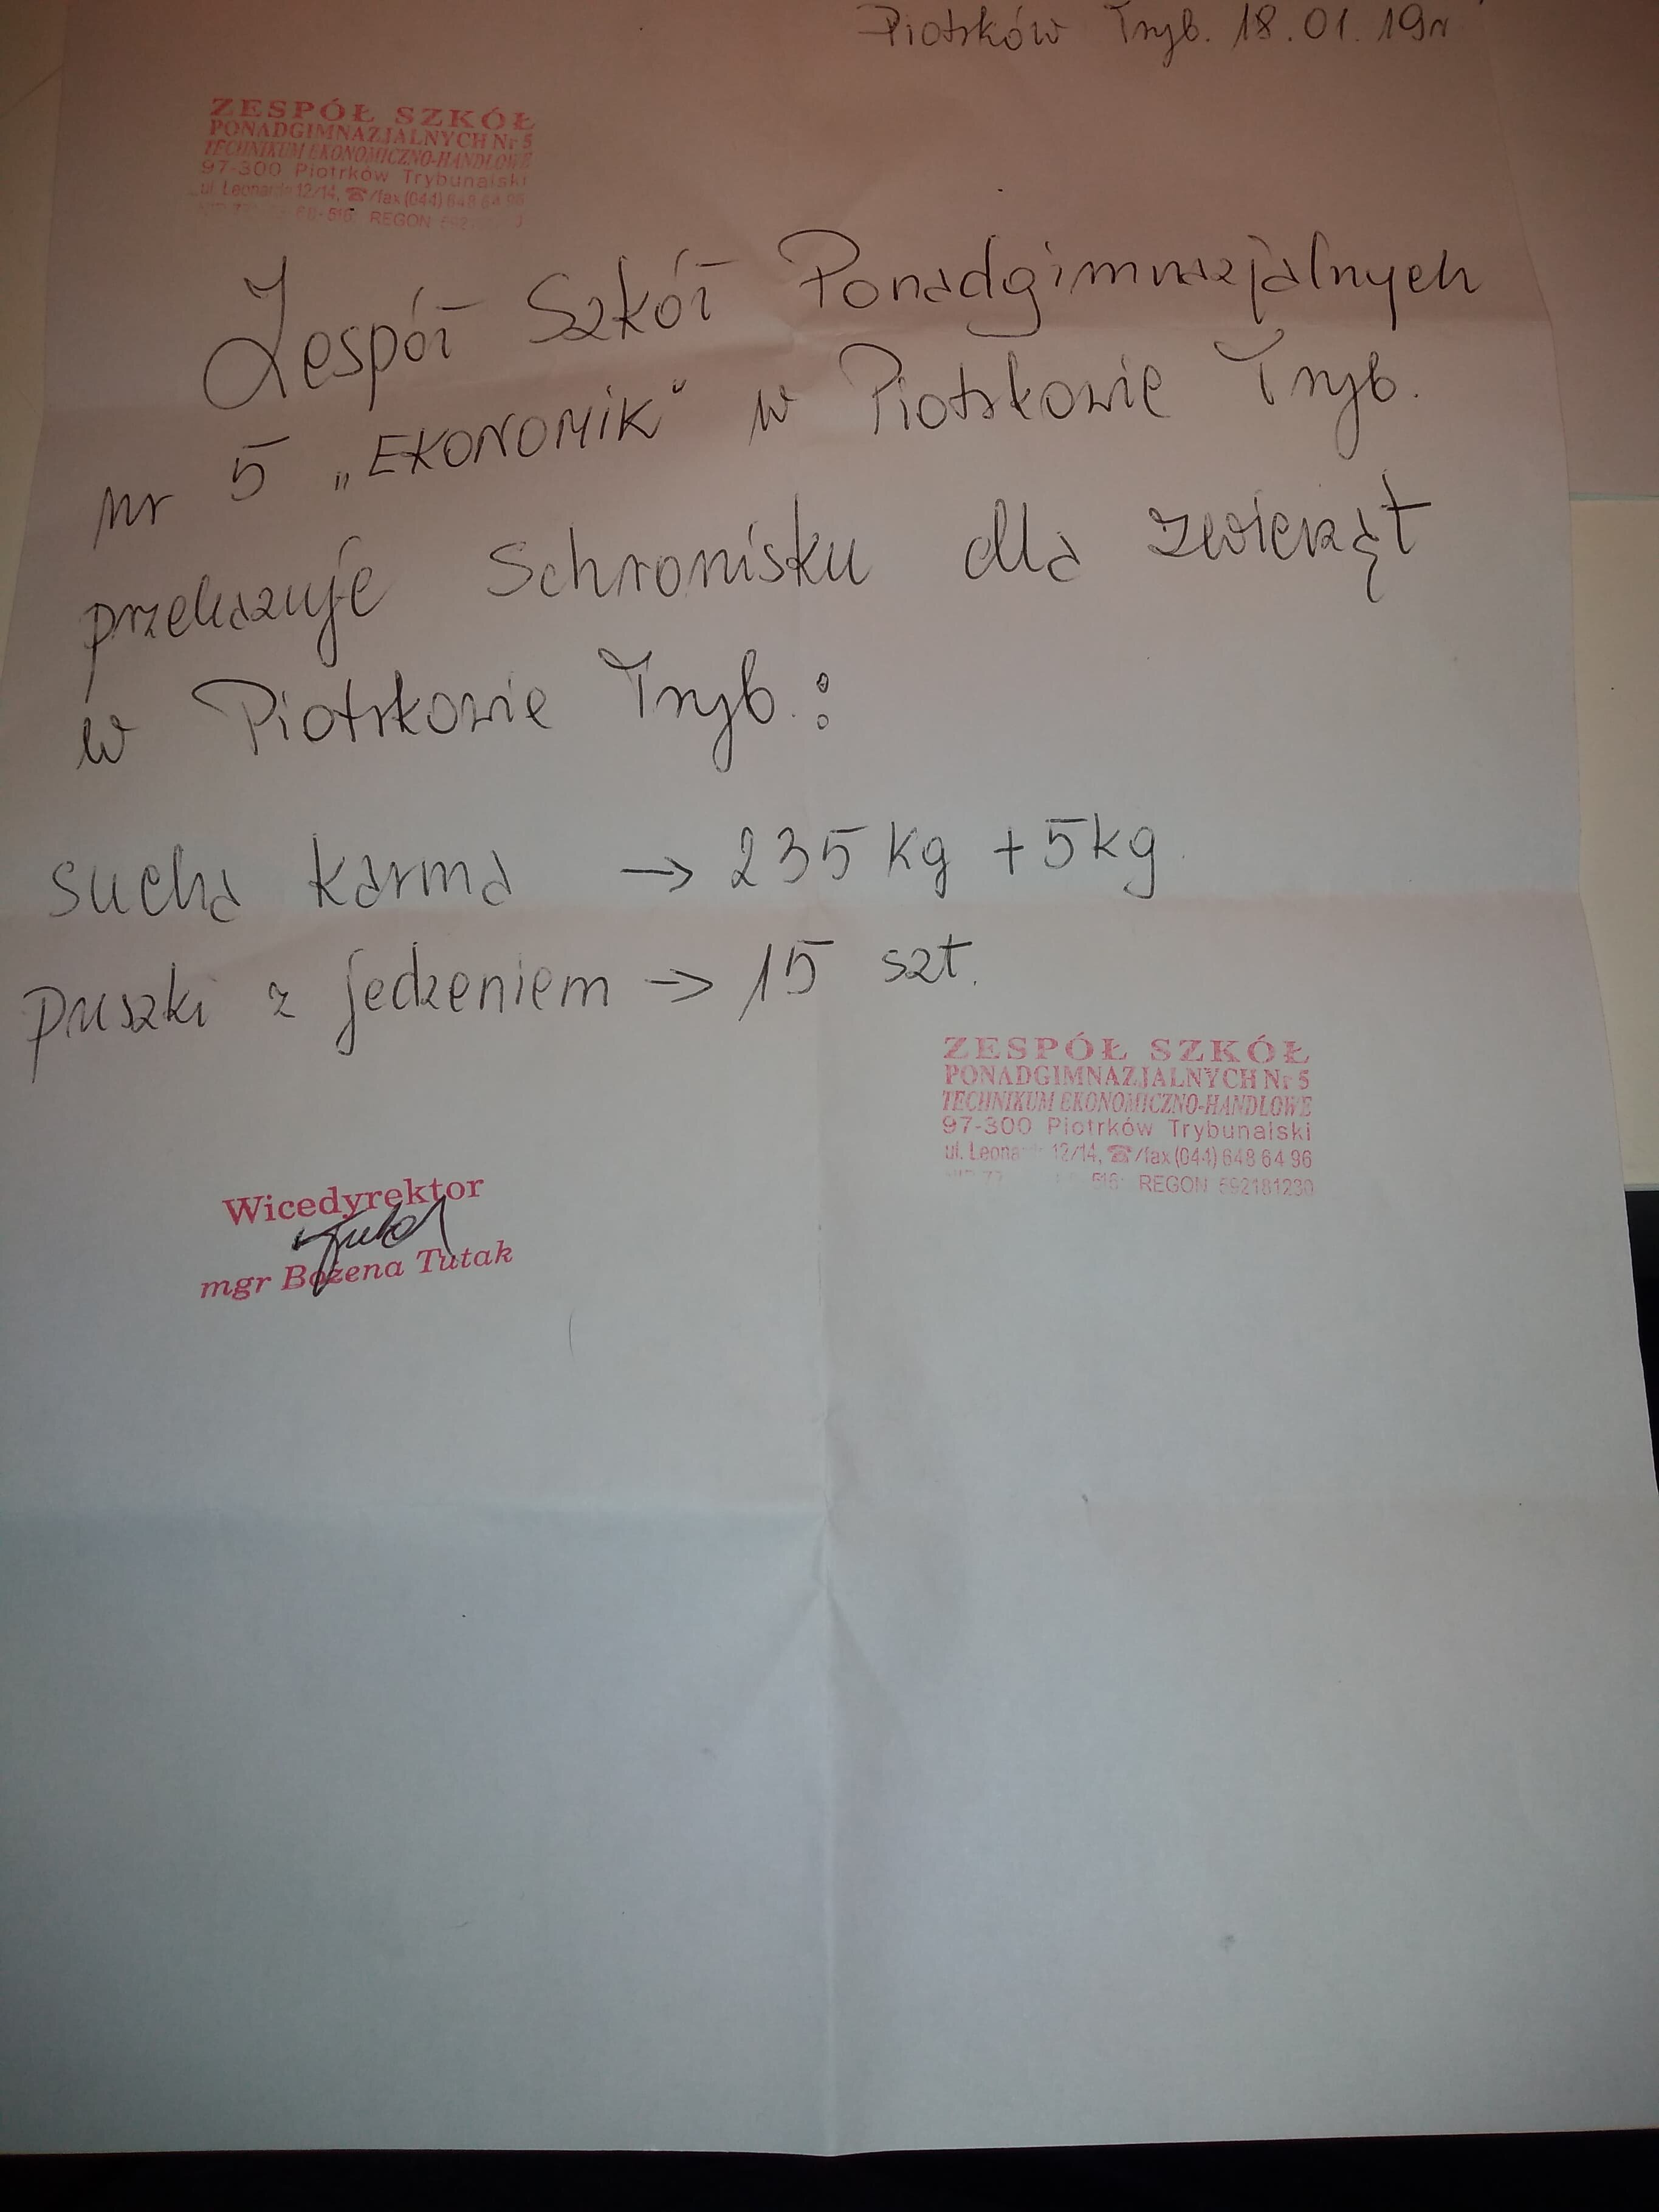 Piotrków Tryb. 18.01.19r
ZESPÓŁ SZKÓŁ
PONADGIMNAZJALNYCH Nr 5
TECHNIKUM EKONOMICZNO-HANDLOWE
97-300 Piotrków Trybunalski
ul. 12/14, ☎/fax (044) 648 64 96
516 REGON
Zespół Szkół Ponadgimnazjalnych
nr 5 „EKONOMIK" w Piotrkowie Tryb.
przekazuje Schronisku dla zwierząt
w Piotrkowie Tryb.:
sucha karma → 235 kg + 5kg
puszki z jedzeniem → 15 szt.
ZESPÓŁ SZKÓŁ
PONADGIMNAZJALNYCH Nr 5
TECHNIKUM EKONOMICZNO-HANDLOWE
97-300 Piotrków Trybunalski
ul. 12/14, ☎/fax (044) 648 64 96
516 REGON 592181230
Wicedyrektor
mgr Bożena Tutak